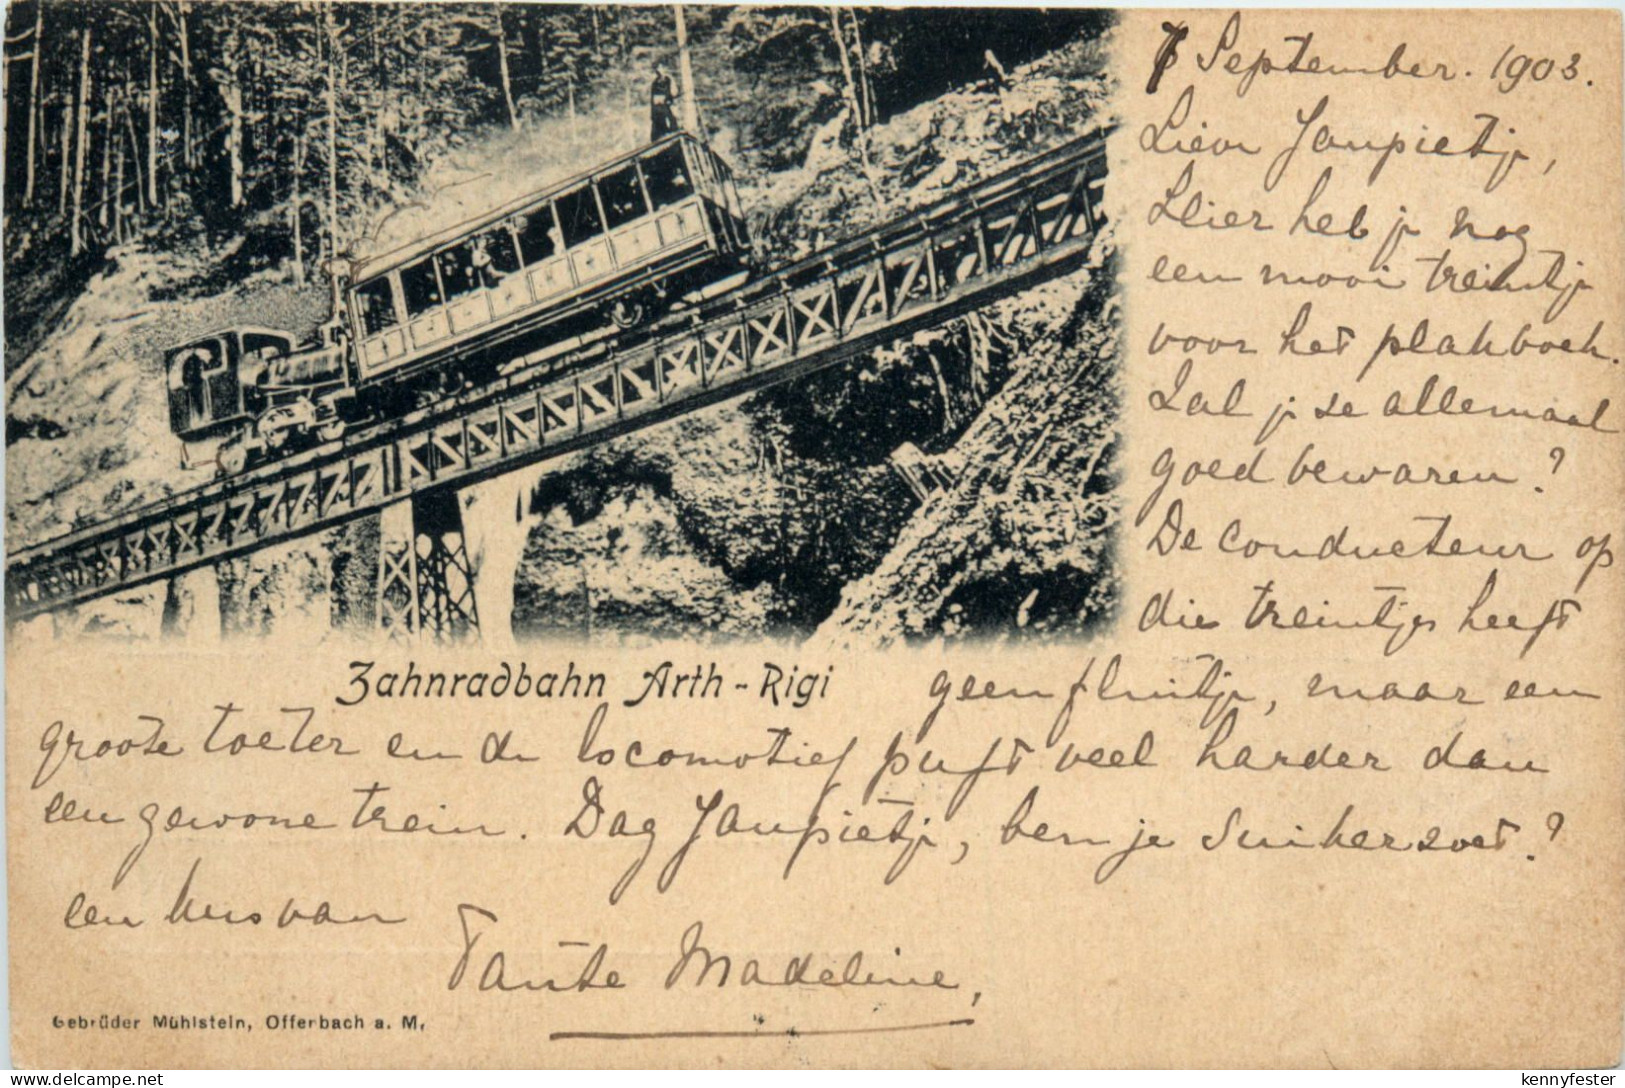 7 September. 1903.
Lieve Jaupietje,
Hier heb je nog
een mooi treintje
voor het plakboek.
Zal je ze allemaal
goed bewaren?
De conducteur op
die treintjes heeft
Zahnradbahn Arth-Rigi
geen fluitje, maar een
groote toeter en de locomotief puft veel harder dan
een gewone trein. Dag Jaupietje, ben je suikerzoet?
een kus van
Tante Madeline,
Gebrüder Mühlstein, Offerbach a. M.
delcampe.net
kennyfester